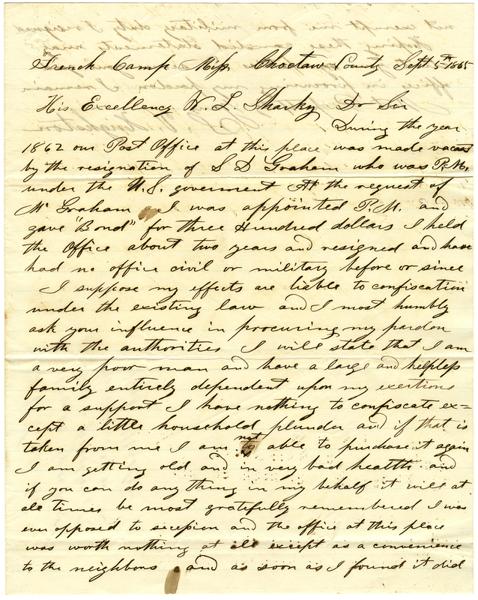 French Camp Miss, Choctaw County Sept 5th 1865
His Excellency W. L. Sharky Dr Sir
During the year
1862 our Post Office at this place was made vacant
by the resignation of S D Graham who was P.M.
under the U.S. goverment At the request of
Mr Graham I was appointed P.M. and
gave "Bond" for three Hundred dollars I held
the Office about two years and resigned and have
had no office civil or military before or since
I suppose my effects are liable to confiscation
under the existing law and I most humbly
ask your influence in procuring my pardon
with the authorities I will state that I am
a very poor man and have a large and helpless
family entirely dependent upon my exertions
for a support I have nothing to confiscate ex=
cept a little household plunder and if that is
taken from me I am not able to purchase it again
I am getting old and in very bad health and
if you can do any thing in my behalf it will at
all times be most gratefully remembered I was
ever opposed to secession and the office at this place
was worth nothing at all except as a convenience
to the neighbors and as soon as I found it did